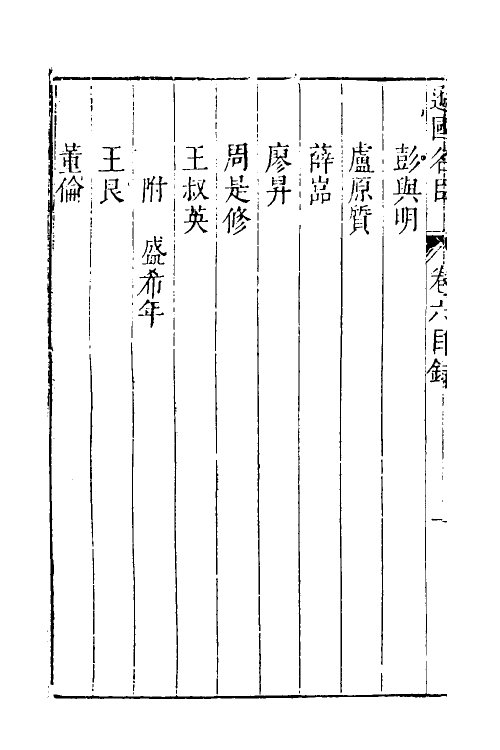 遜國名臣 卷六目録 一
彭與明
盧原質
薛嵓
廖昇
周是修
王叔英
附 盛希年
王艮
董倫